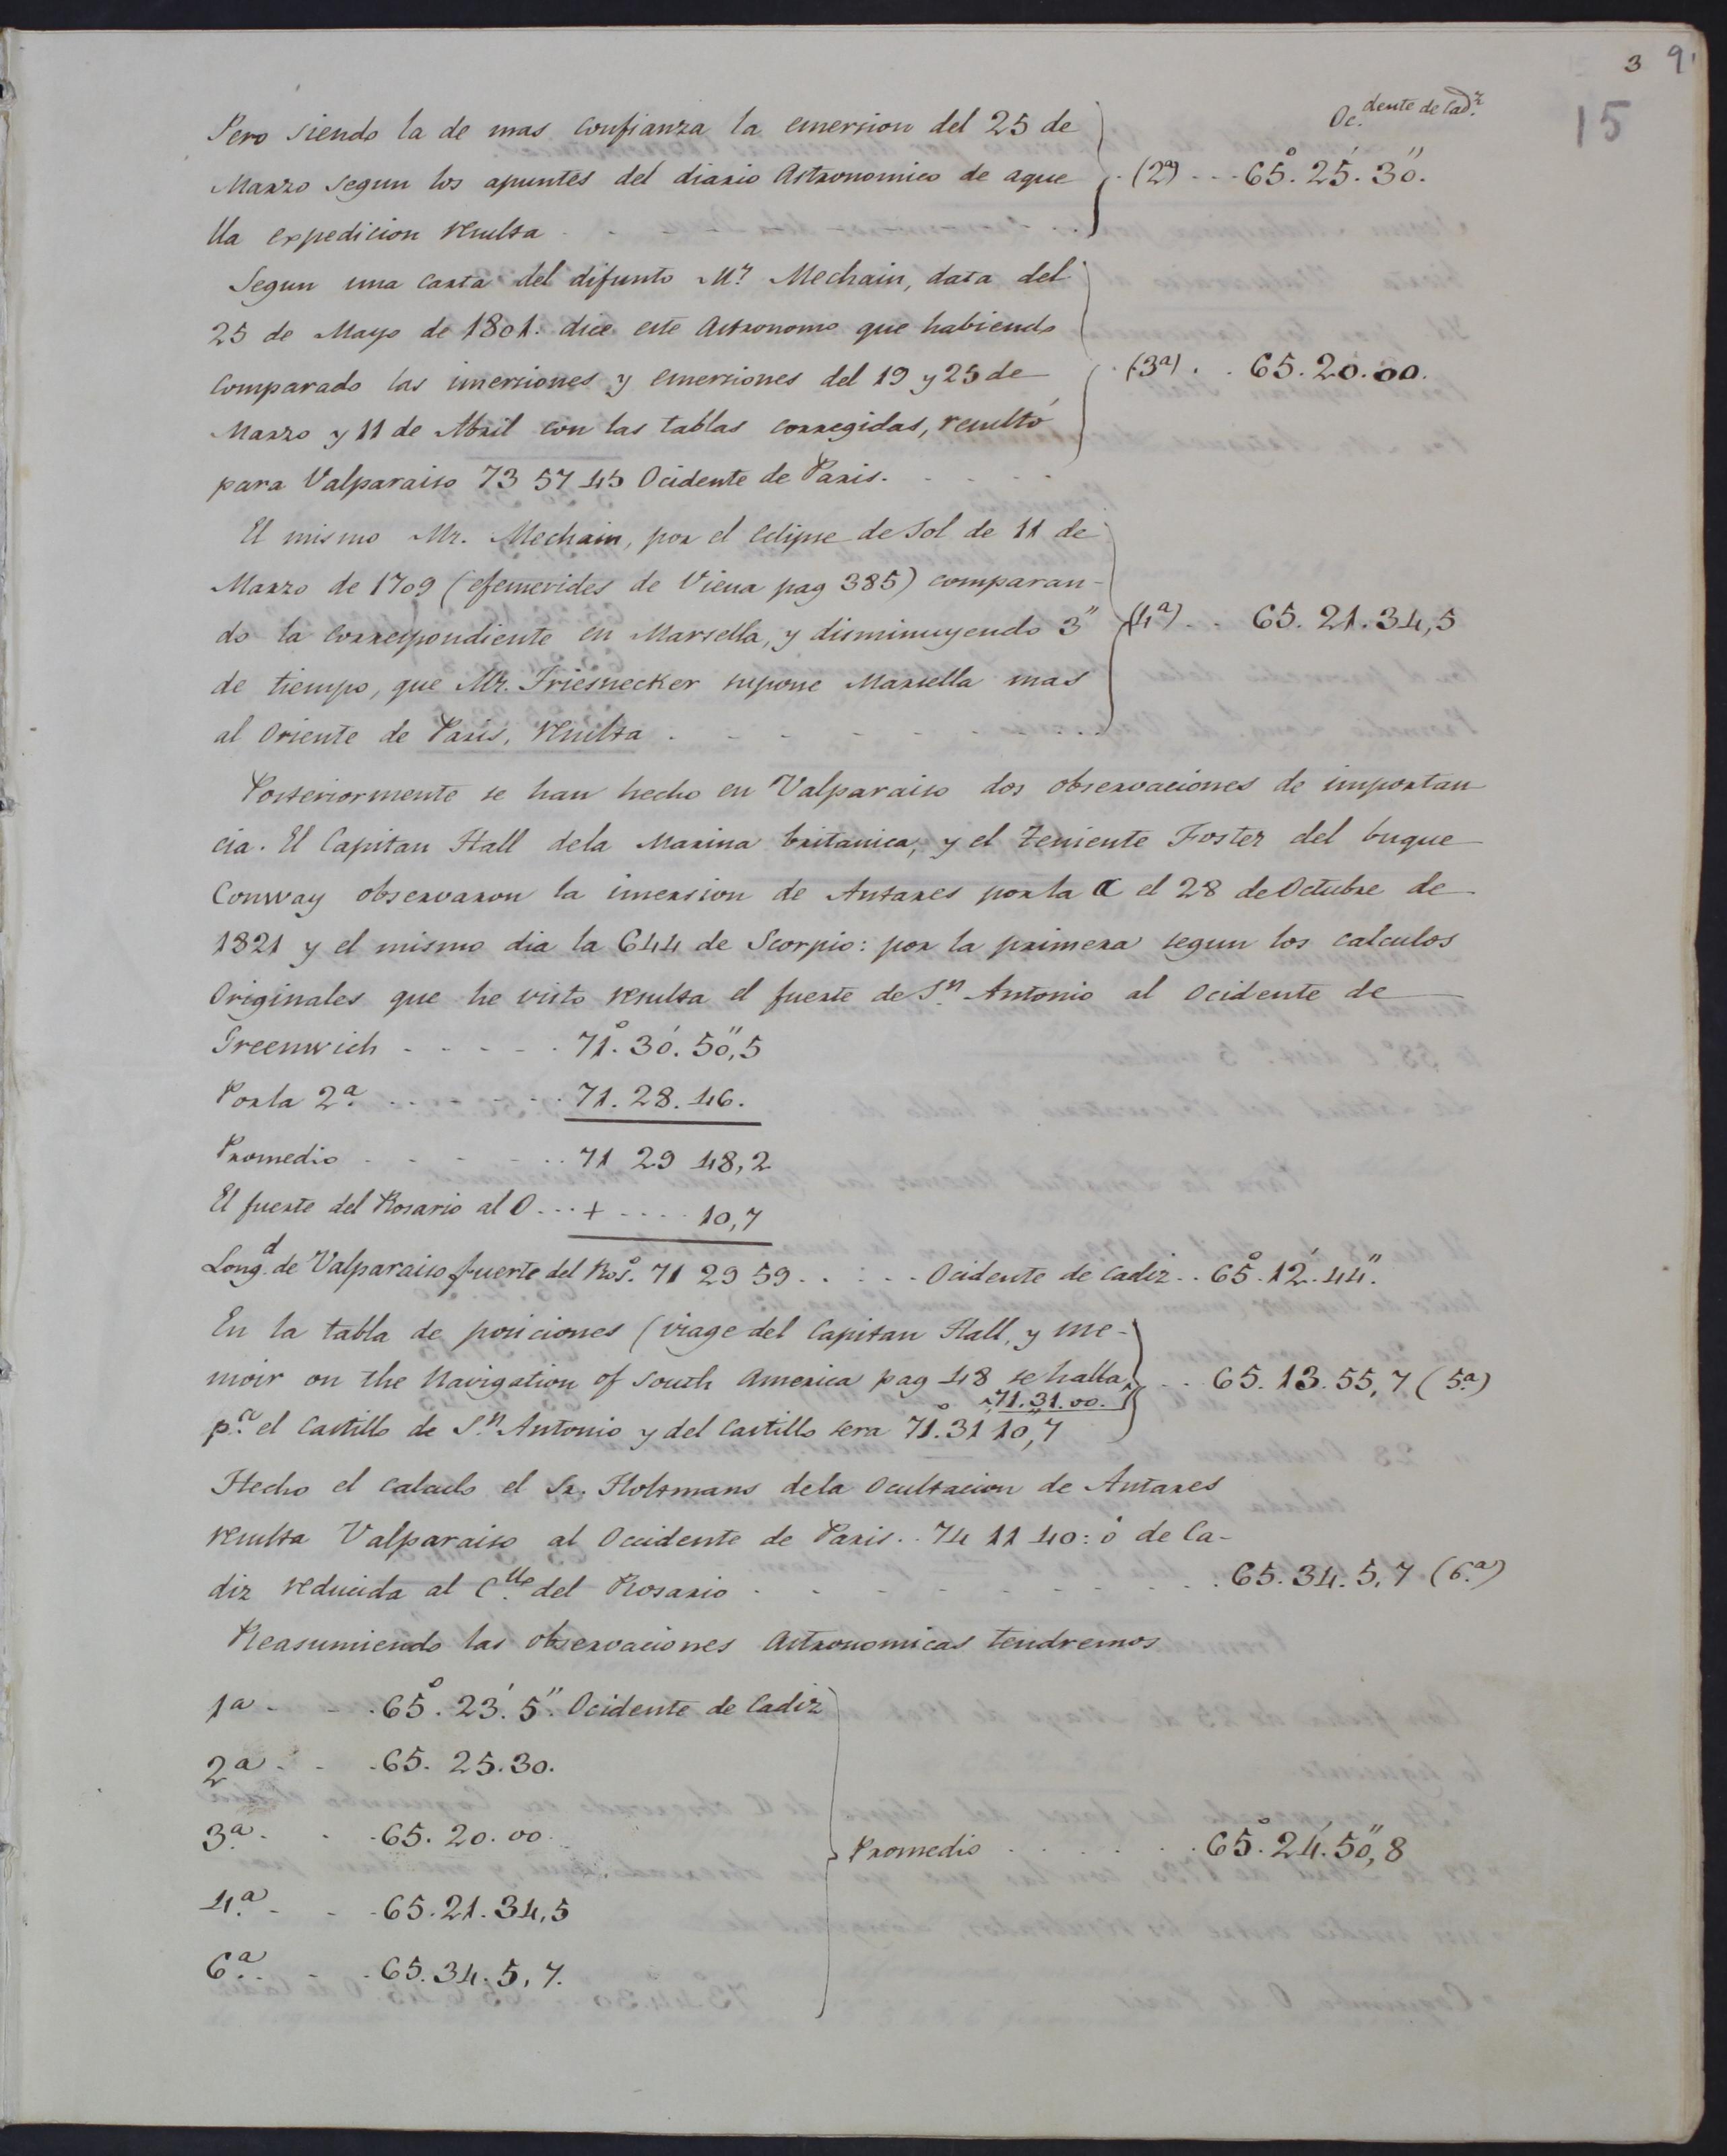 3 9
15
Oc.dente de Cad.z
Pero siendo la de mas confianza la emersion del 25 de
Marzo segun los apuntes del diario Astronomico de aque (2a) - - - 65.° 25.' 30."
lla expedicion resulta - - -
Segun una carta del difunto Mr. Mechain, data del
25 de Mayo de 1801. dice este Astronomo que habiendo
comparado las imersiones y emersiones del 19 y 25 de (3a) . . 65. 20. 00.
Marzo y 11 de Abril con las tablas corregidas, resultó
para Valparaiso 73 57 45 Ocidente de Paris. - - - -
El mismo Mr. Mechain, por el eclipse de Sol de 11 de
Marzo de 1709 (efemerides de Viena pag 385) comparan-
do la correspondiente en Marsella, y disminuyendo 3" (4a) . . 65. 21. 34,5
de tiempo, que Mr. Friesnecker supone Marsella mas
al Oriente de Paris, resulta . - - - - -
Posteriormente se han hecho en Valparaiso dos observaciones de importan
cia. El Capitan Hall dela Marina britanica, y el teniente Foster del buque
Conway observaron la imersion de Antares porla ☾ el 28 de Octubre de
1821 y el mismo dia la 644 de Scorpio: por la primera segun los calculos
Originales que he visto resulta el fuerte de S.n Antonio al Ocidente de
Greenwich - - - - - - 71.° 30.' 50,"5
Porla 2.a - - - - - - 71. 28. 46.
Promedio - - - - - - 71 29 48,2
El fuerte del Rosario al O. - - + - - - - 10,7
Long.d de Valparaiso fuerte del Ros.o 71 29 59 . . . . . Ocidente de Cadiz . . 65.° 12.' 44."
En la tabla de posiciones (viage del Capitan Hall, y me-
moir on the Navigation of South America pag 48 se halla . . 65. 13. 55,7 (5.a)
71. 31. 00.
p.a el Castillo de S.n Antonio y del Castillo sera 71.° 31 10,"7
Hecho el calculo el Sr. Holtmans dela Ocultacion de Antares
resulta Valparaiso al Occidente de Paris . . 74 11 40: ó de Ca-
diz reducida al C.llo del Rosario - - - - - - - - - 65. 34. 5,7 (6.a)
Reasumiendo las observaciones Astronomicas tendremos
1a - - - 65.° 23.' 5". Ocidente de Cadiz
2a - - - 65. 25. 30.
3a. - - 65. 20. 00
Promedio . . . . . . 65.° 24.' 50,"8
4.a - - - 65. 21. 34,5
6.a - - - 65. 34. 5,7.